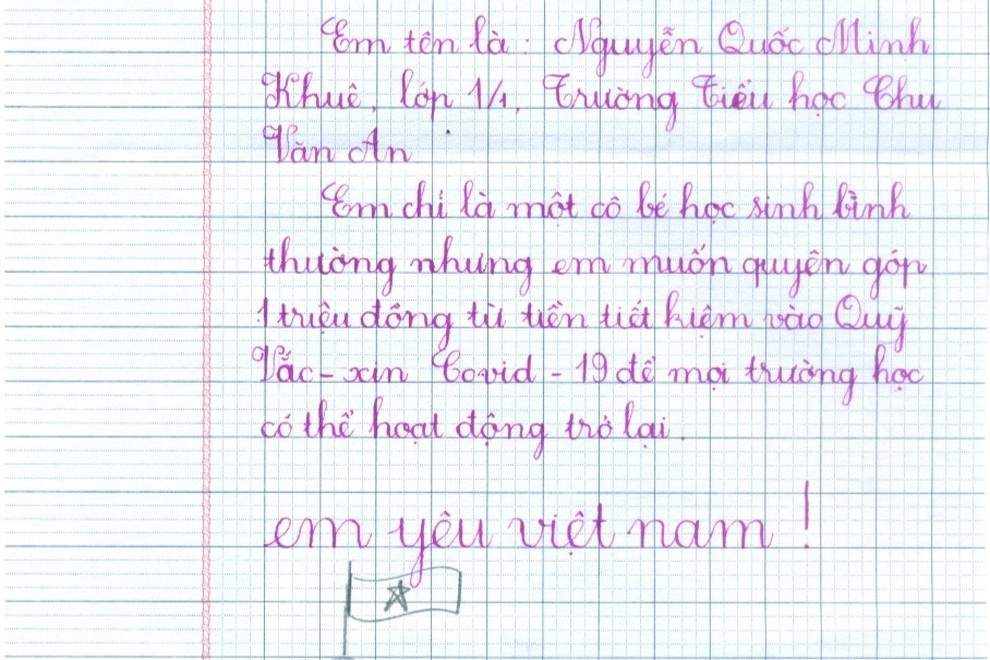 Em tên là : Nguyễn Quốc Minh
Khuê, lớp 1/1, Trường Tiểu học Chu
Văn An
Em chỉ là một cô bé học sinh bình
thường nhưng em muốn quyên góp
1 triệu đồng từ tiền tiết kiệm vào Quỹ
Vắc-xin Covid - 19 để mọi trường học
có thể hoạt động trở lại.
em yêu việt nam !